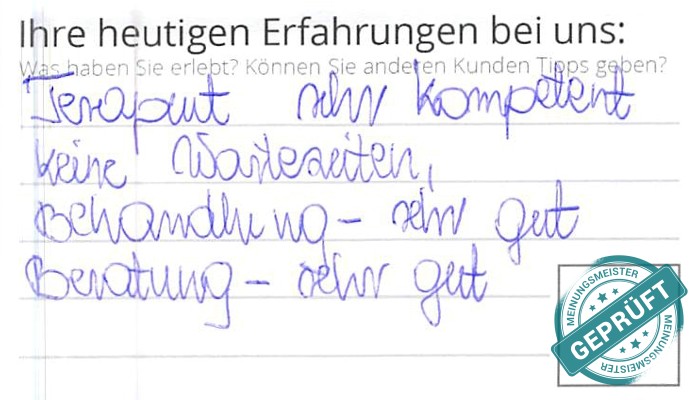 Ihre heutigen Erfahrungen bei uns:
Was haben Sie erlebt? Können Sie anderen Kunden Tipps geben?
Terapeut sehr kompetent
keine Wartezeiten,
Behandlung - sehr gut
Beratung - sehr gut
MEINUNGSMEISTER
GEPRÜFT
MEINUNGSMEISTER